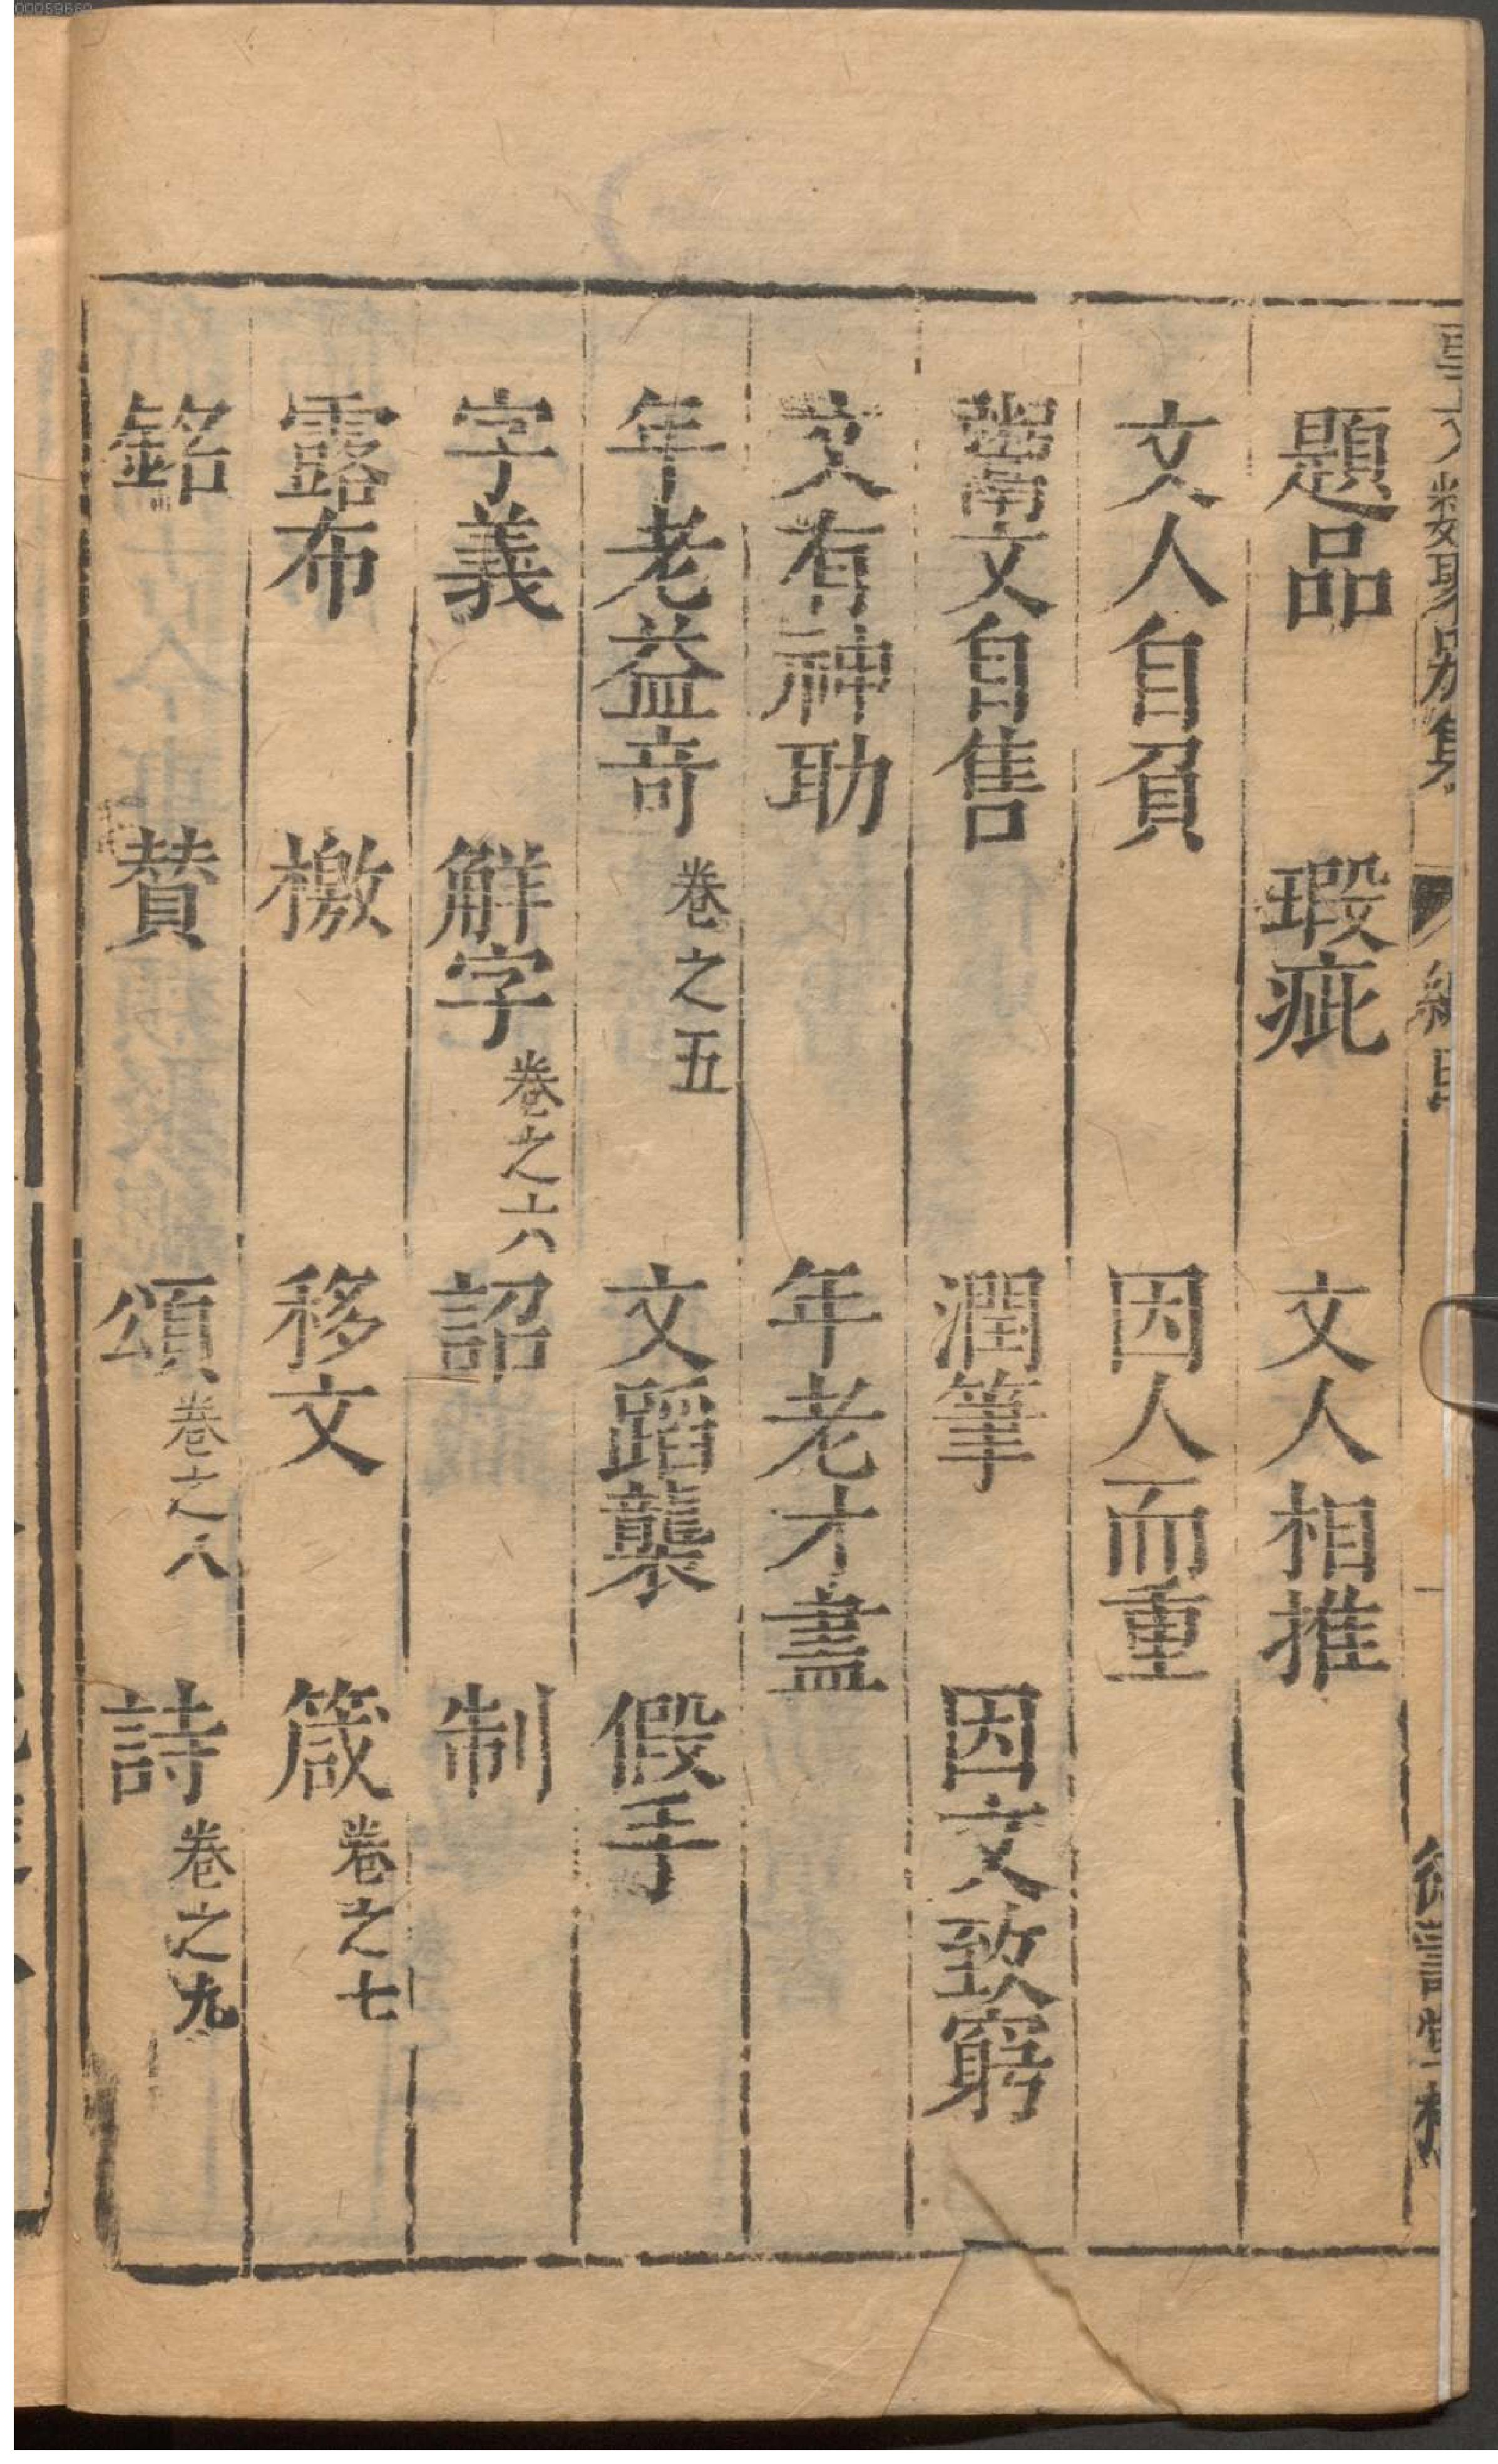 題品 瑕疵 文人相推
文人自負 因人而重
鬻文自售 潤筆 因文致窮
文有神助 年老才盡
年老益竒 卷之五 文蹈襲 假手
字義 觧字 卷之六 詔 制
露布 檄 移文 箴 卷之七
銘 賛 頌 卷之八 詩 卷之九